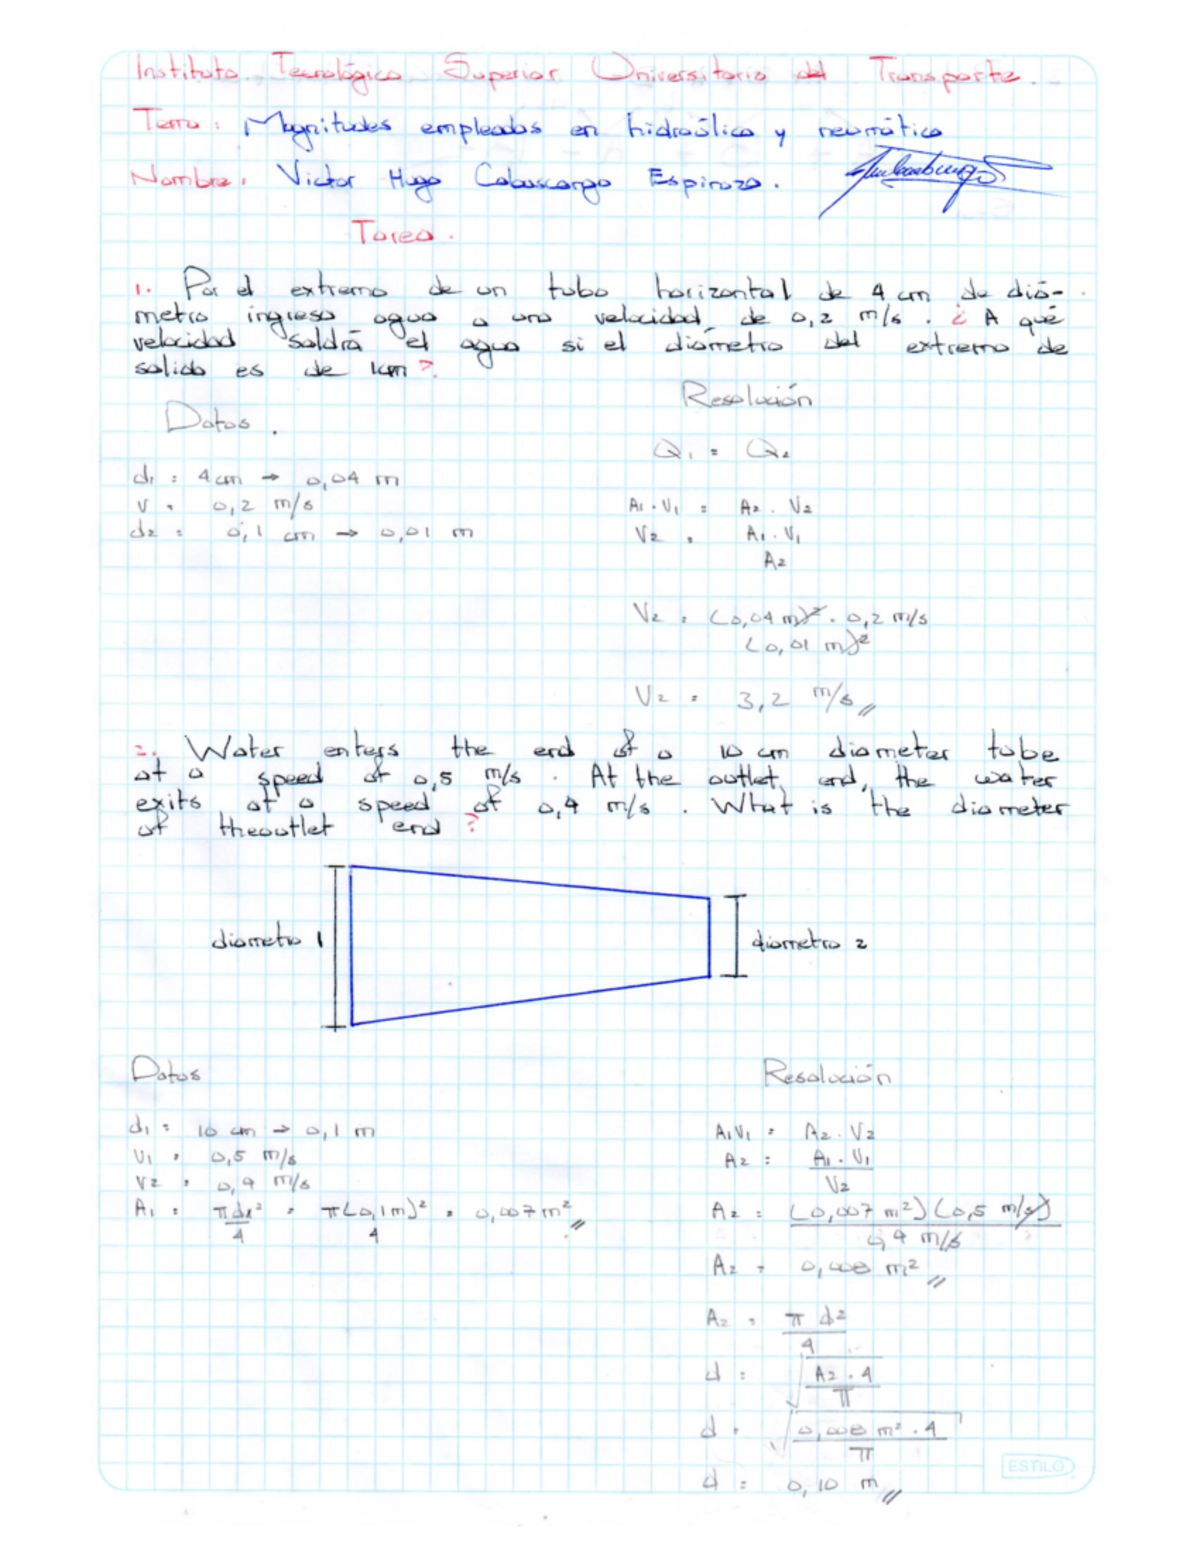 Instituto Tecnológico Superior Universitario del Transporte.
Tema: Magnitudes empleadas en hidraúlica y neumática
Nombre: Victor Hugo Cabascango Espinoza.
Tarea.
1. Por el extremo de un tubo horizontal de 4 cm de diá-
metro ingresa agua a una velocidad de 0,2 m/s. ¿A qué
velocidad saldrá el agua si el diámetro del extremo de
salida es de 1cm?
Resolución
Datos.
Q₁ = Q₂
d₁ = 4cm → 0,04 m
V = 0,2 m/s
d₂ = 0,1 cm → 0,01 m
A₁ . V₁ = A₂ . V₂
V₂ = A₁ . V₁
A₂
V₂ = (0,04 m)² . 0,2 m/s
(0,01 m)²
V₂ = 3,2 m/s //
2. Water enters the end of a 10 cm diameter tube
at a speed of 0,5 m/s. At the outlet end, the water
exits at a speed of 0,4 m/s. What is the diameter
of theoutlet end?
diametro 1
diametro 2
Datos
Resolución
d₁ = 10 cm → 0,1 m
V₁ = 0,5 m/s
V₂ = 0,4 m/s
A₁ = πd₁²/4 = π(0,1m)²/4 = 0,007m² //
A₁V₁ = A₂ . V₂
A₂ = A₁ . V₁
V₂
A₂ = (0,007 m²)(0,5 m/s)
0,4 m/s
A₂ = 0,008 m² //
A₂ = π d²
4
d = √ A₂ . 4
π
d = √ 0,008 m² . 4
π
d = 0,10 m //
ESTILO